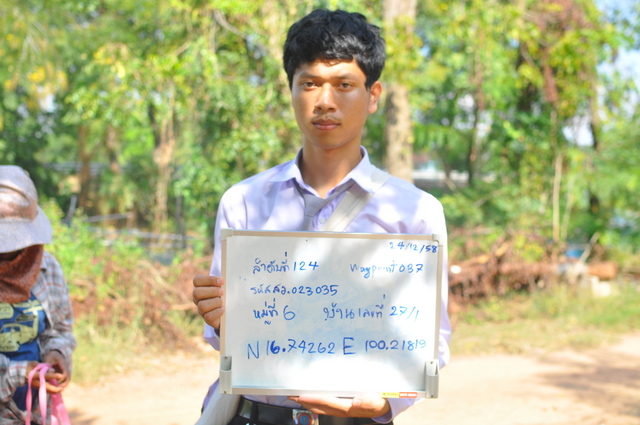 24/12/58
ลำดับที่ 124 waypoint 037
รหัส สว.023035
หมู่ที่ 6 บ้านเลขที่ 27/1
N 16.74262 E 100.21819